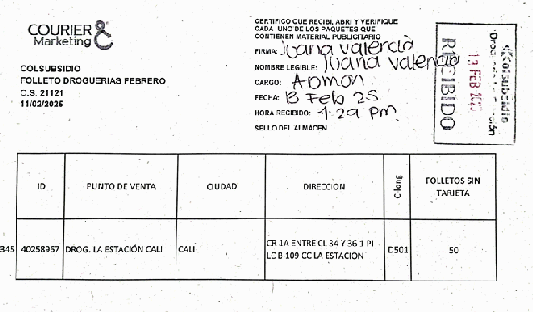 COURIER &
Marketing
COLSUBSIDIO
FOLLETO DROGUERIAS FEBRERO
O.S. 21121
11/02/2025
CERTIFICO QUE RECIBI, ABRI Y VERIFIQUE
CADA UNO DE LOS PAQUETES QUE
CONTIENEN MATERIAL PUBLICITARIO
FIRMA: Juana Valencia
NOMBRE LEGIBLE: Juana Valencia
CARGO: Admon
FECHA: 13 Feb 25
HORA RECIBIDO: 1:29 pm
SELLO DEL ALMACEN
Colsubsidio
13 FEB
RECIBIDO
ID PUNTO DE VENTA CIUDAD DIRECCION FOLLETOS SIN TARJETA
345 40258957 DROG. LA ESTACIÓN CALI CALI CR 1A ENTRE CL 34 Y 36 1 PI
LC B 109 CC LA ESTACIÓN D501 50